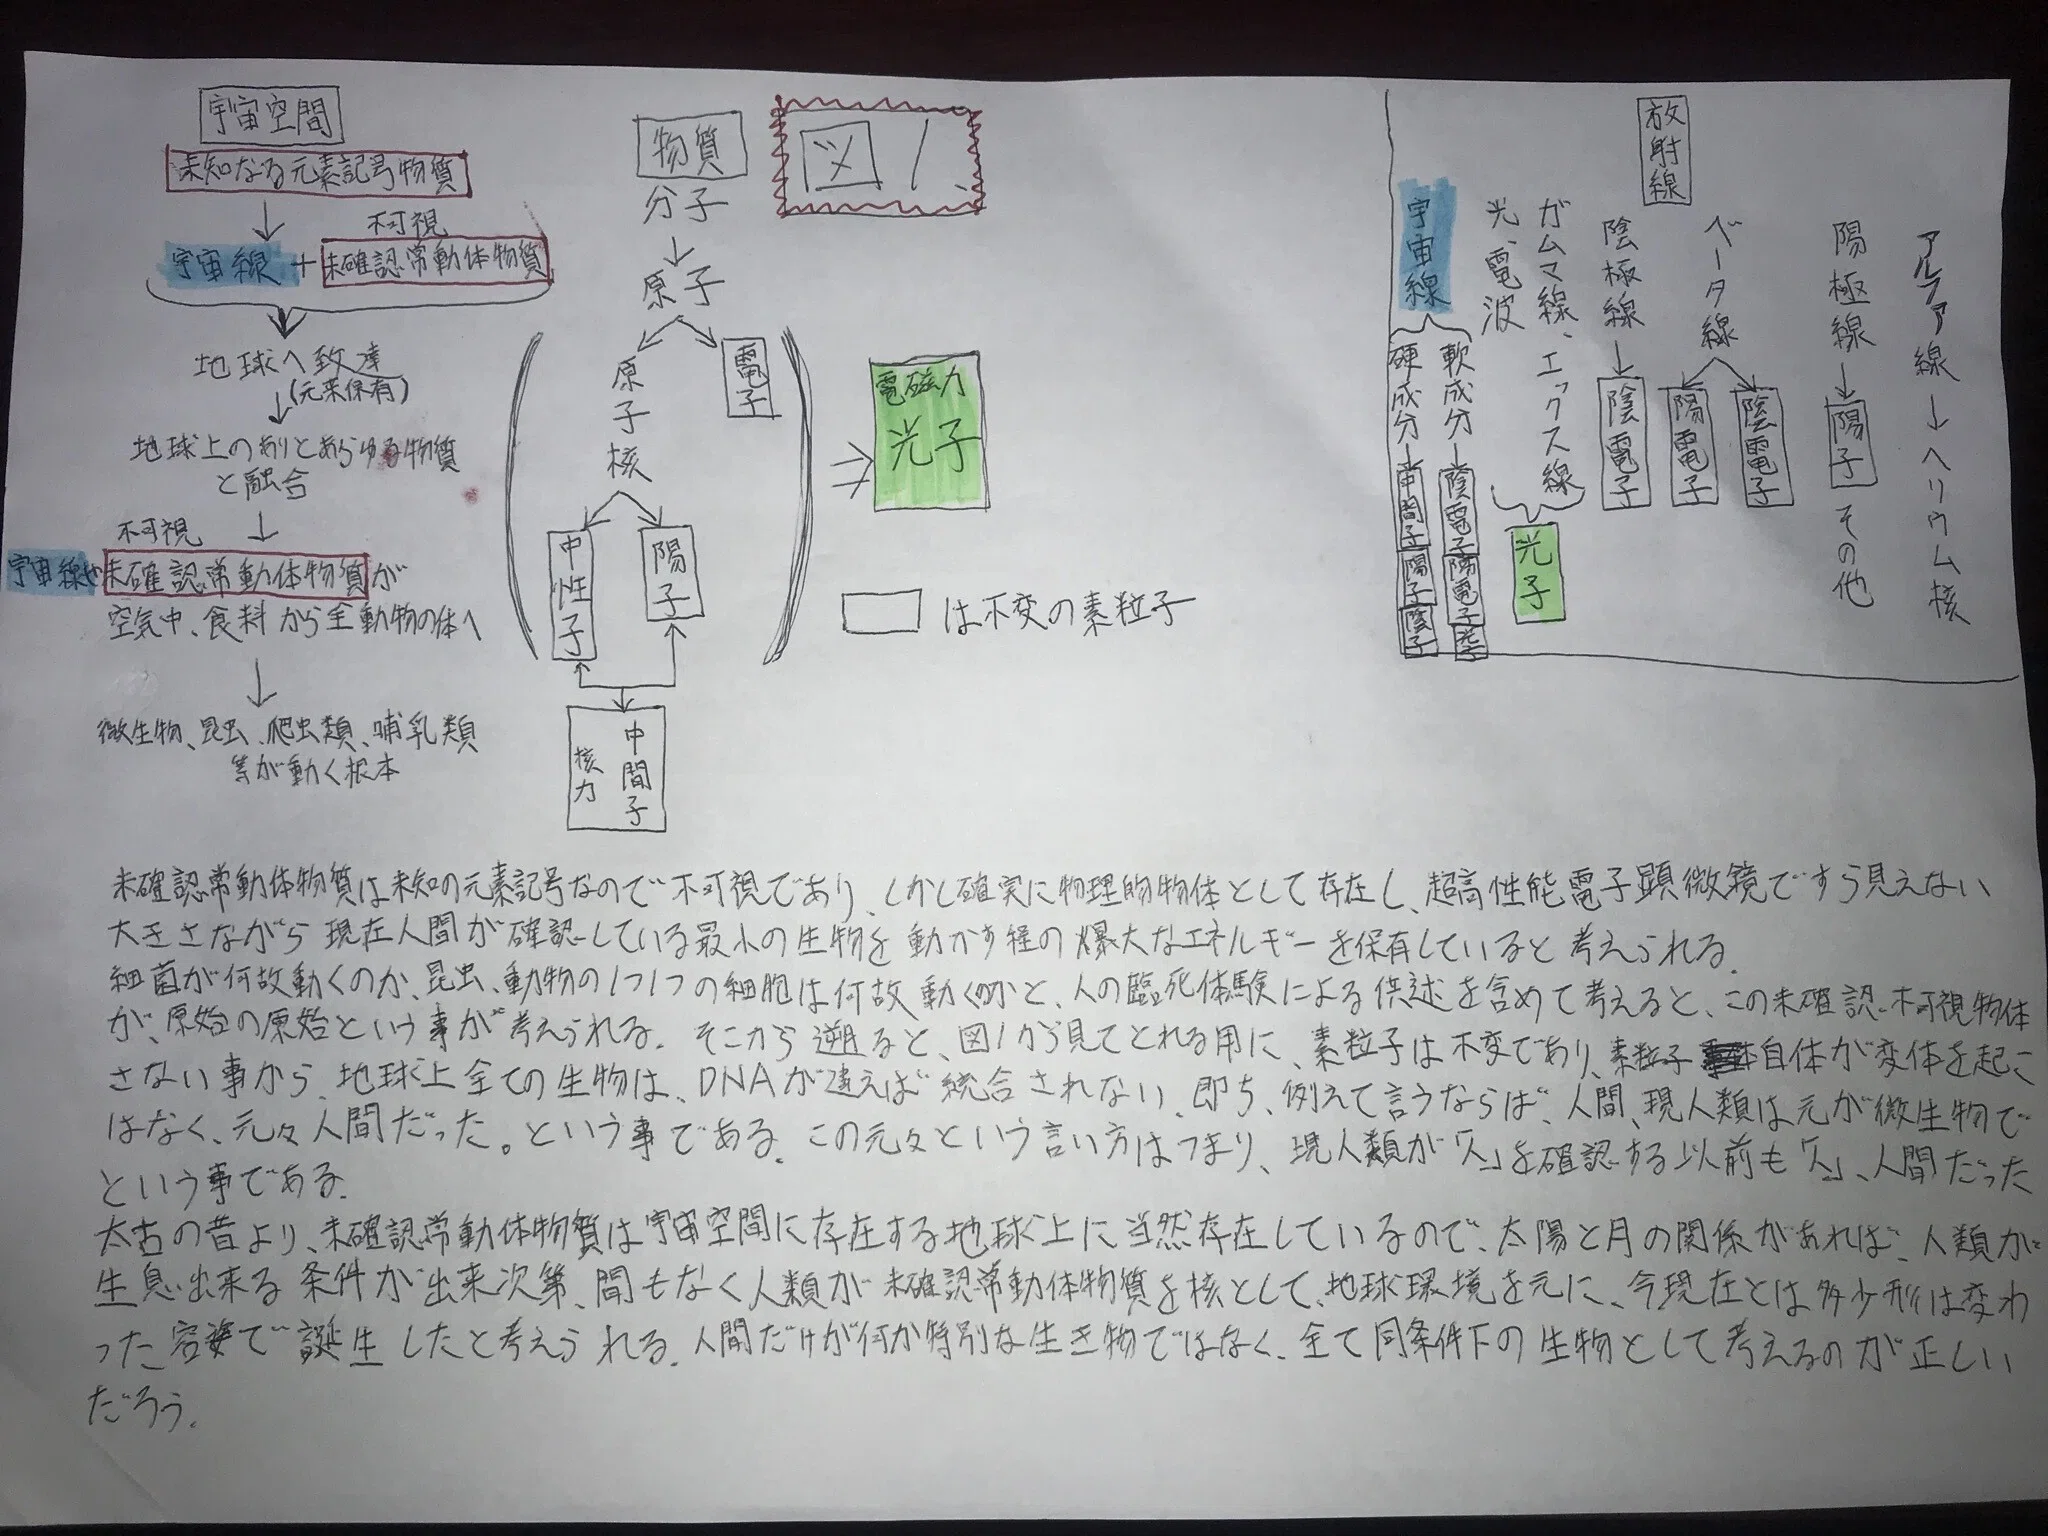 宇宙空間
未知なる元素記号物質
↓
不可視
宇宙線 + 未確認常動体物質
地球へ致達
(元来保有)
↓
地球上のありとあらゆる物質
と融合
↓
不可視
宇宙線や未確認常動体物質が
空気中、食料から全動物の体へ
↓
微生物、昆虫、爬虫類、哺乳類
等が動く根本
物質
分子
↓
原子
原子核
電子
中性子
陽子
中間子
核力
図1
⇒
電磁力
光子
は不変の素粒子
放射線
アルファ線→ヘリウム核
陽極線→陽子その他
ベータ線
陰電子
陽電子
陰極線→陰電子
ガムマ線、エックス線
光、電波
光子
宇宙線
軟成分→陰電子陽電子光子
硬成分→中間子陽子陰子
未確認常動体物質は未知の元素記号なので不可視であり、しかし確実に物理的物体として存在し、超高性能電子顕微鏡ですら見えない
大きさながら現在人間が確認している最小の生物を動かす程の爆大なエネルギーを保有していると考えられる.
細菌が何故動くのか、昆虫、動物の1つ1つの細胞は何故動くのかと、人の臨死体験による供述を含めて考えると、この未確認不可視物体
が、原始の原始という事が考えられる. そこから遡ると、図1から見てとれる用に、素粒子は不変であり、素粒子自体が変体を起こ
さない事から、地球上全ての生物は、DNAが違えば統合されない. 即ち、例えて言うならば、人間、現人類は元が微生物で
はなく、元々人間だった。という事である. この元々という言い方はつまり、現人類が「人」を確認する以前も「人」、人間だった
という事である.
太古の昔より、未確認常動体物質は宇宙空間に存在する地球上に当然存在しているので、太陽と月の関係があれば、人類が
生息出来る条件が出来次第、間もなく人類が未確認常動体物質を核として、地球環境を元に、今現在とは多少形は変わ
った容姿で誕生したと考えられる. 人間だけが何か特別な生き物ではなく、全て同条件下の生物として考えるのが正しい
だろう.